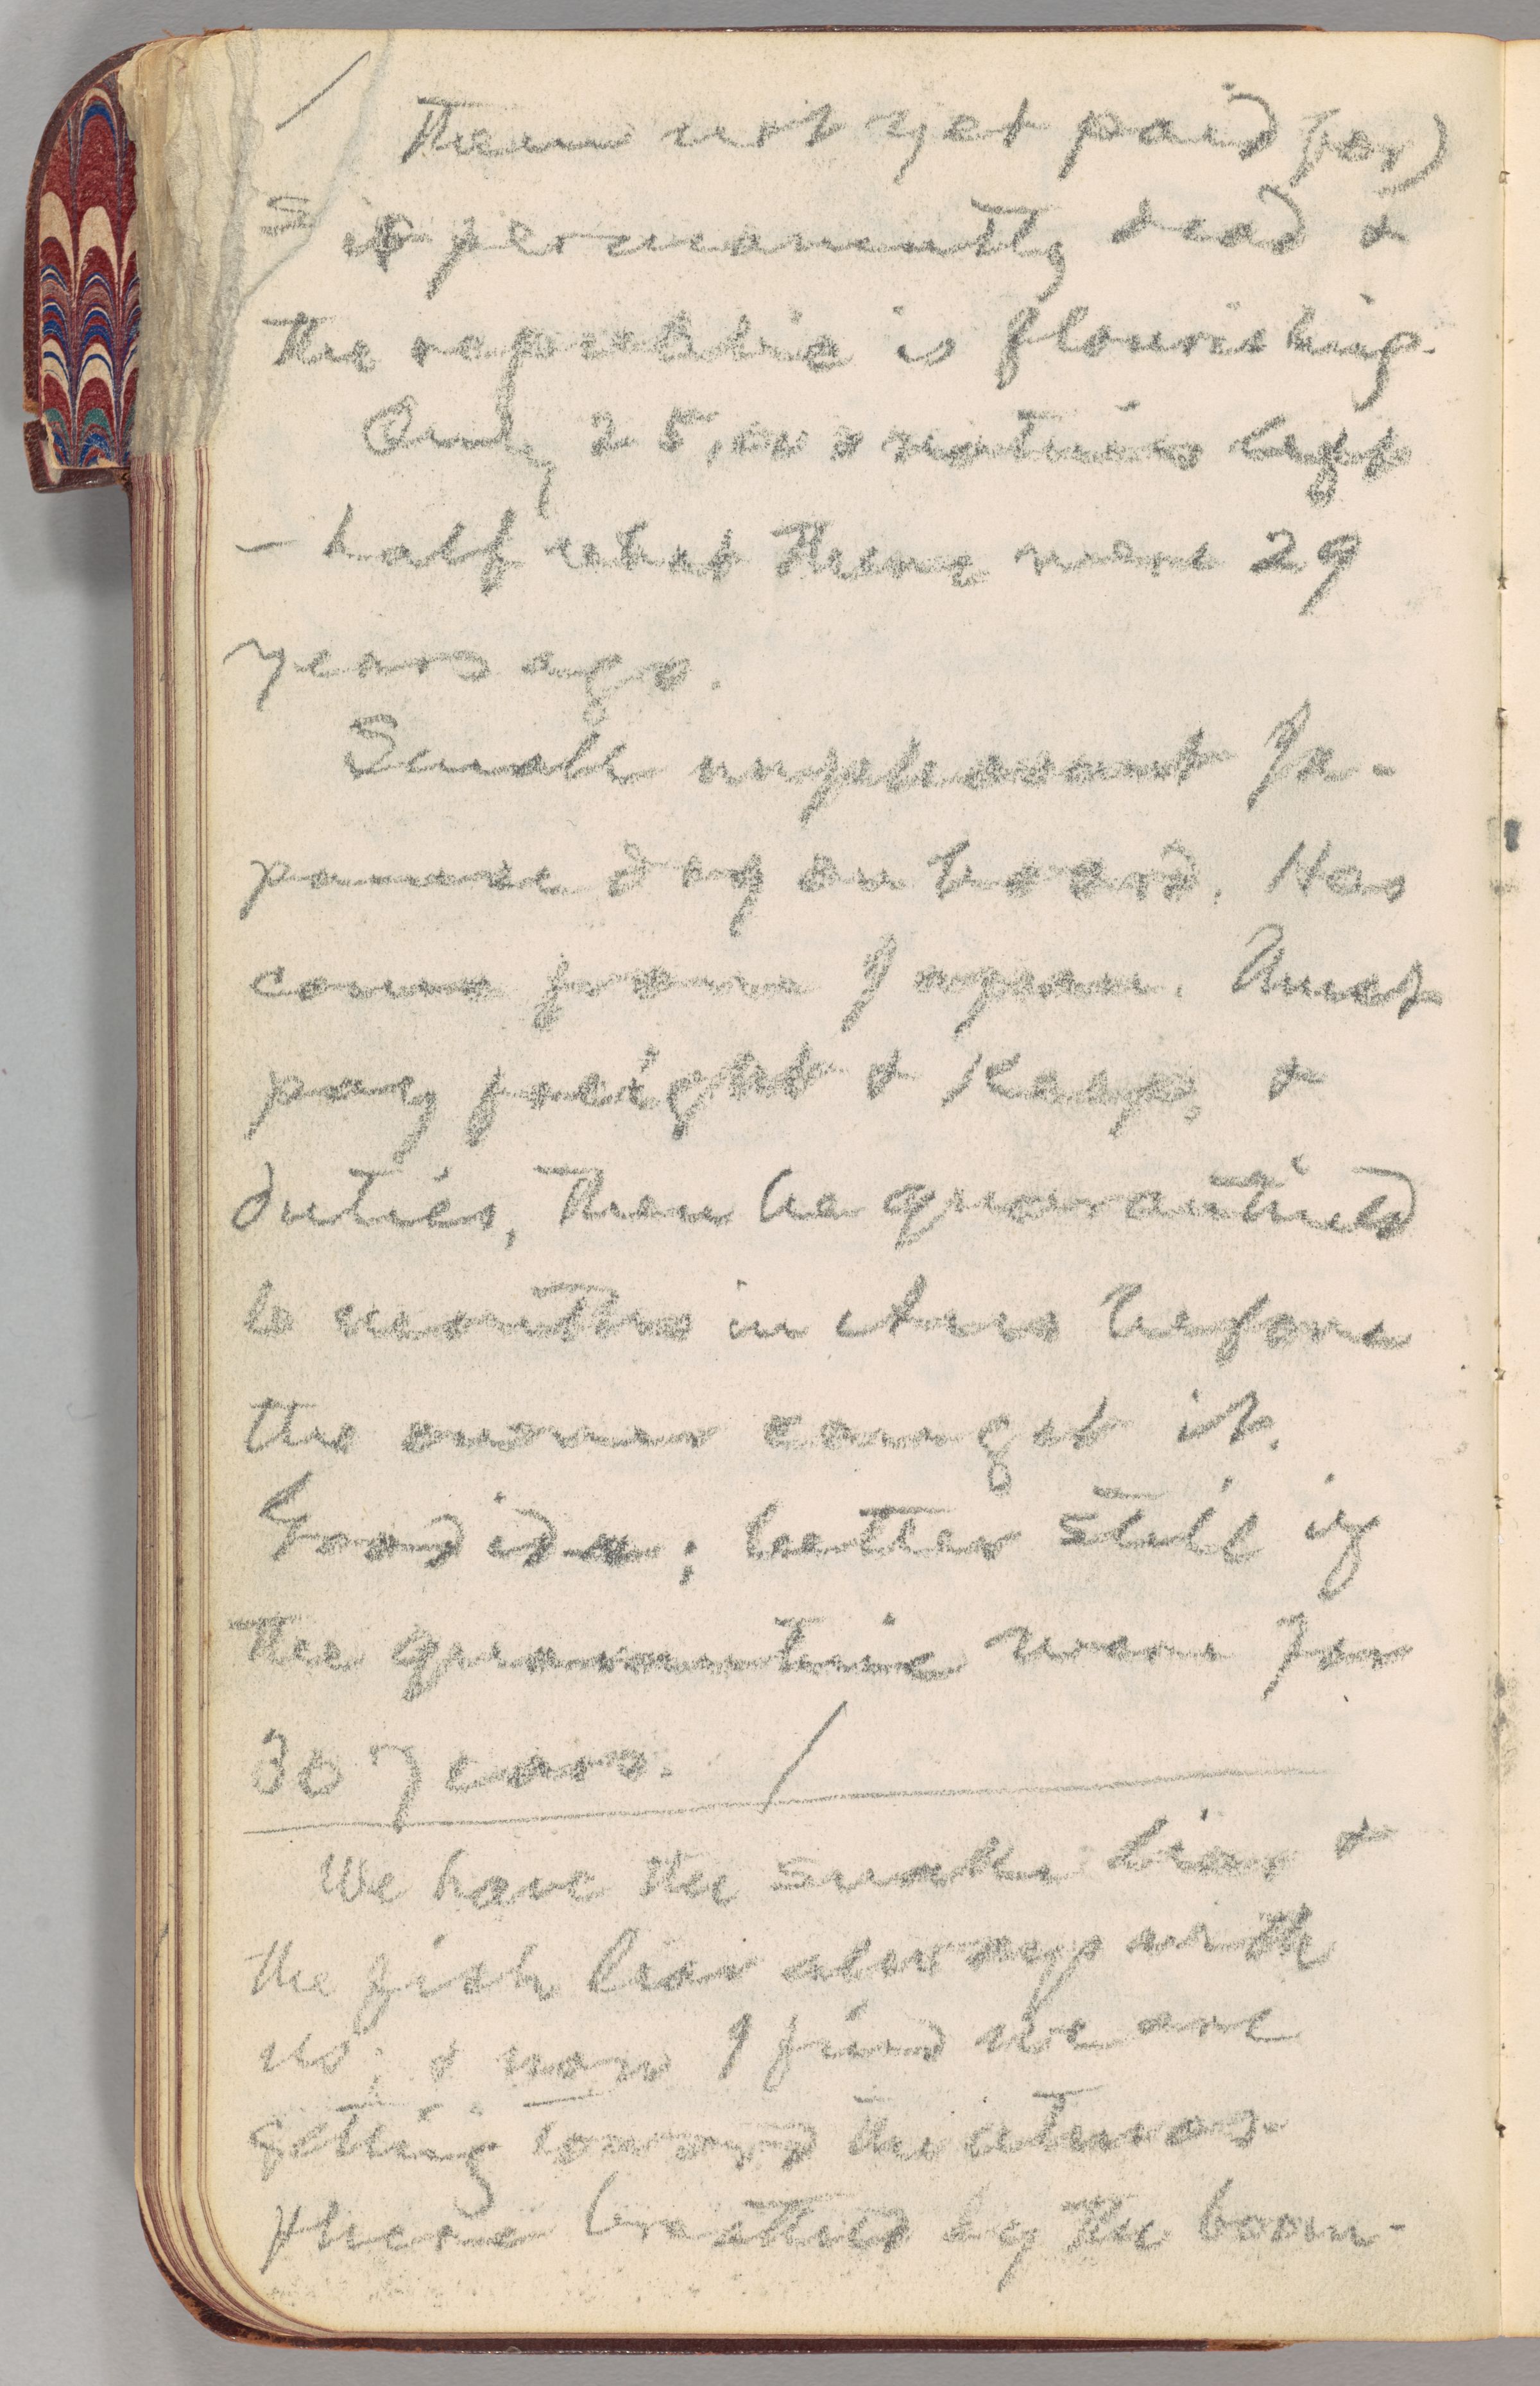 them not yet paid for)
is permanently dead &
the republic is flourishing.
Only 25,000 natives left
– half what there were 29
years ago.
Small unpleasant Ja-
panese dog on board. Has
come from Japan. Must
pay freight & keep, &
duties, then be quarantined
6 months in Aus before
the owner can get it.
Good idea; better still if
the quarantine were for
30 years.
We have the snake liar &
the fish liar always with
us; & now I find we are
getting toward the atmos-
phere breathed by the boom-